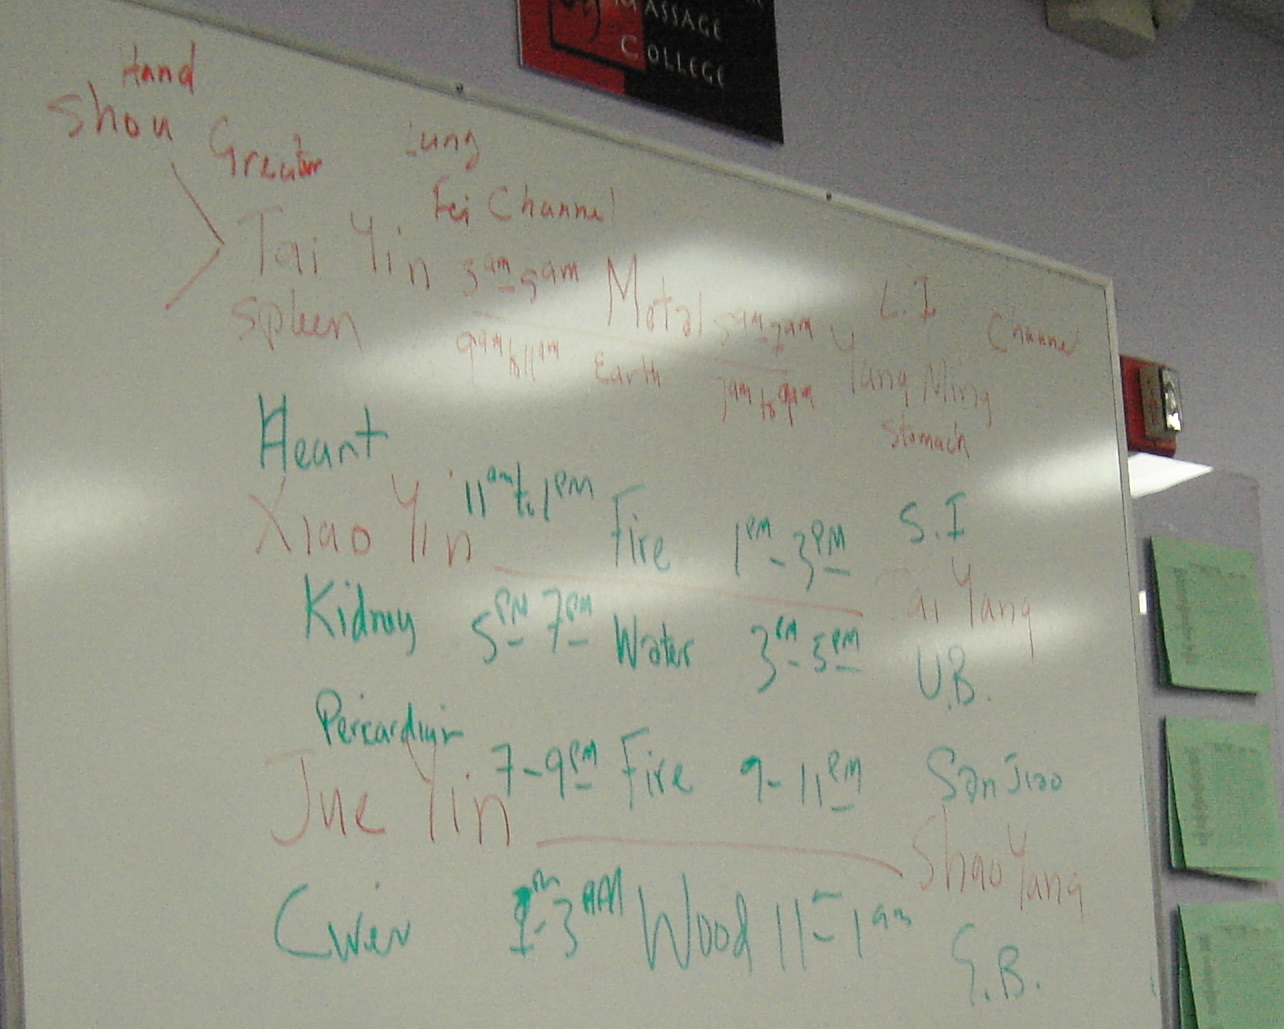 MASSAGE
COLLEGE
Hand
Shou
Greater Lung
Fei Channel
Tai Yin 3am-5am Metal 5am-7am L.I Channel
Spleen 9am to 11am Earth 7am to 9am Yang Ming
Stomach
Heart
11am to 1PM Fire 1PM-3PM S.I
Xiao Yin Tai Yang
Kidney 5PM 7PM Water 3PM-5PM U.B.
Pericardium
7-9PM Fire 9-11PM San Jiao
Jue Yin Shao Yang
1-3AM Wood 11-1am
G.B.